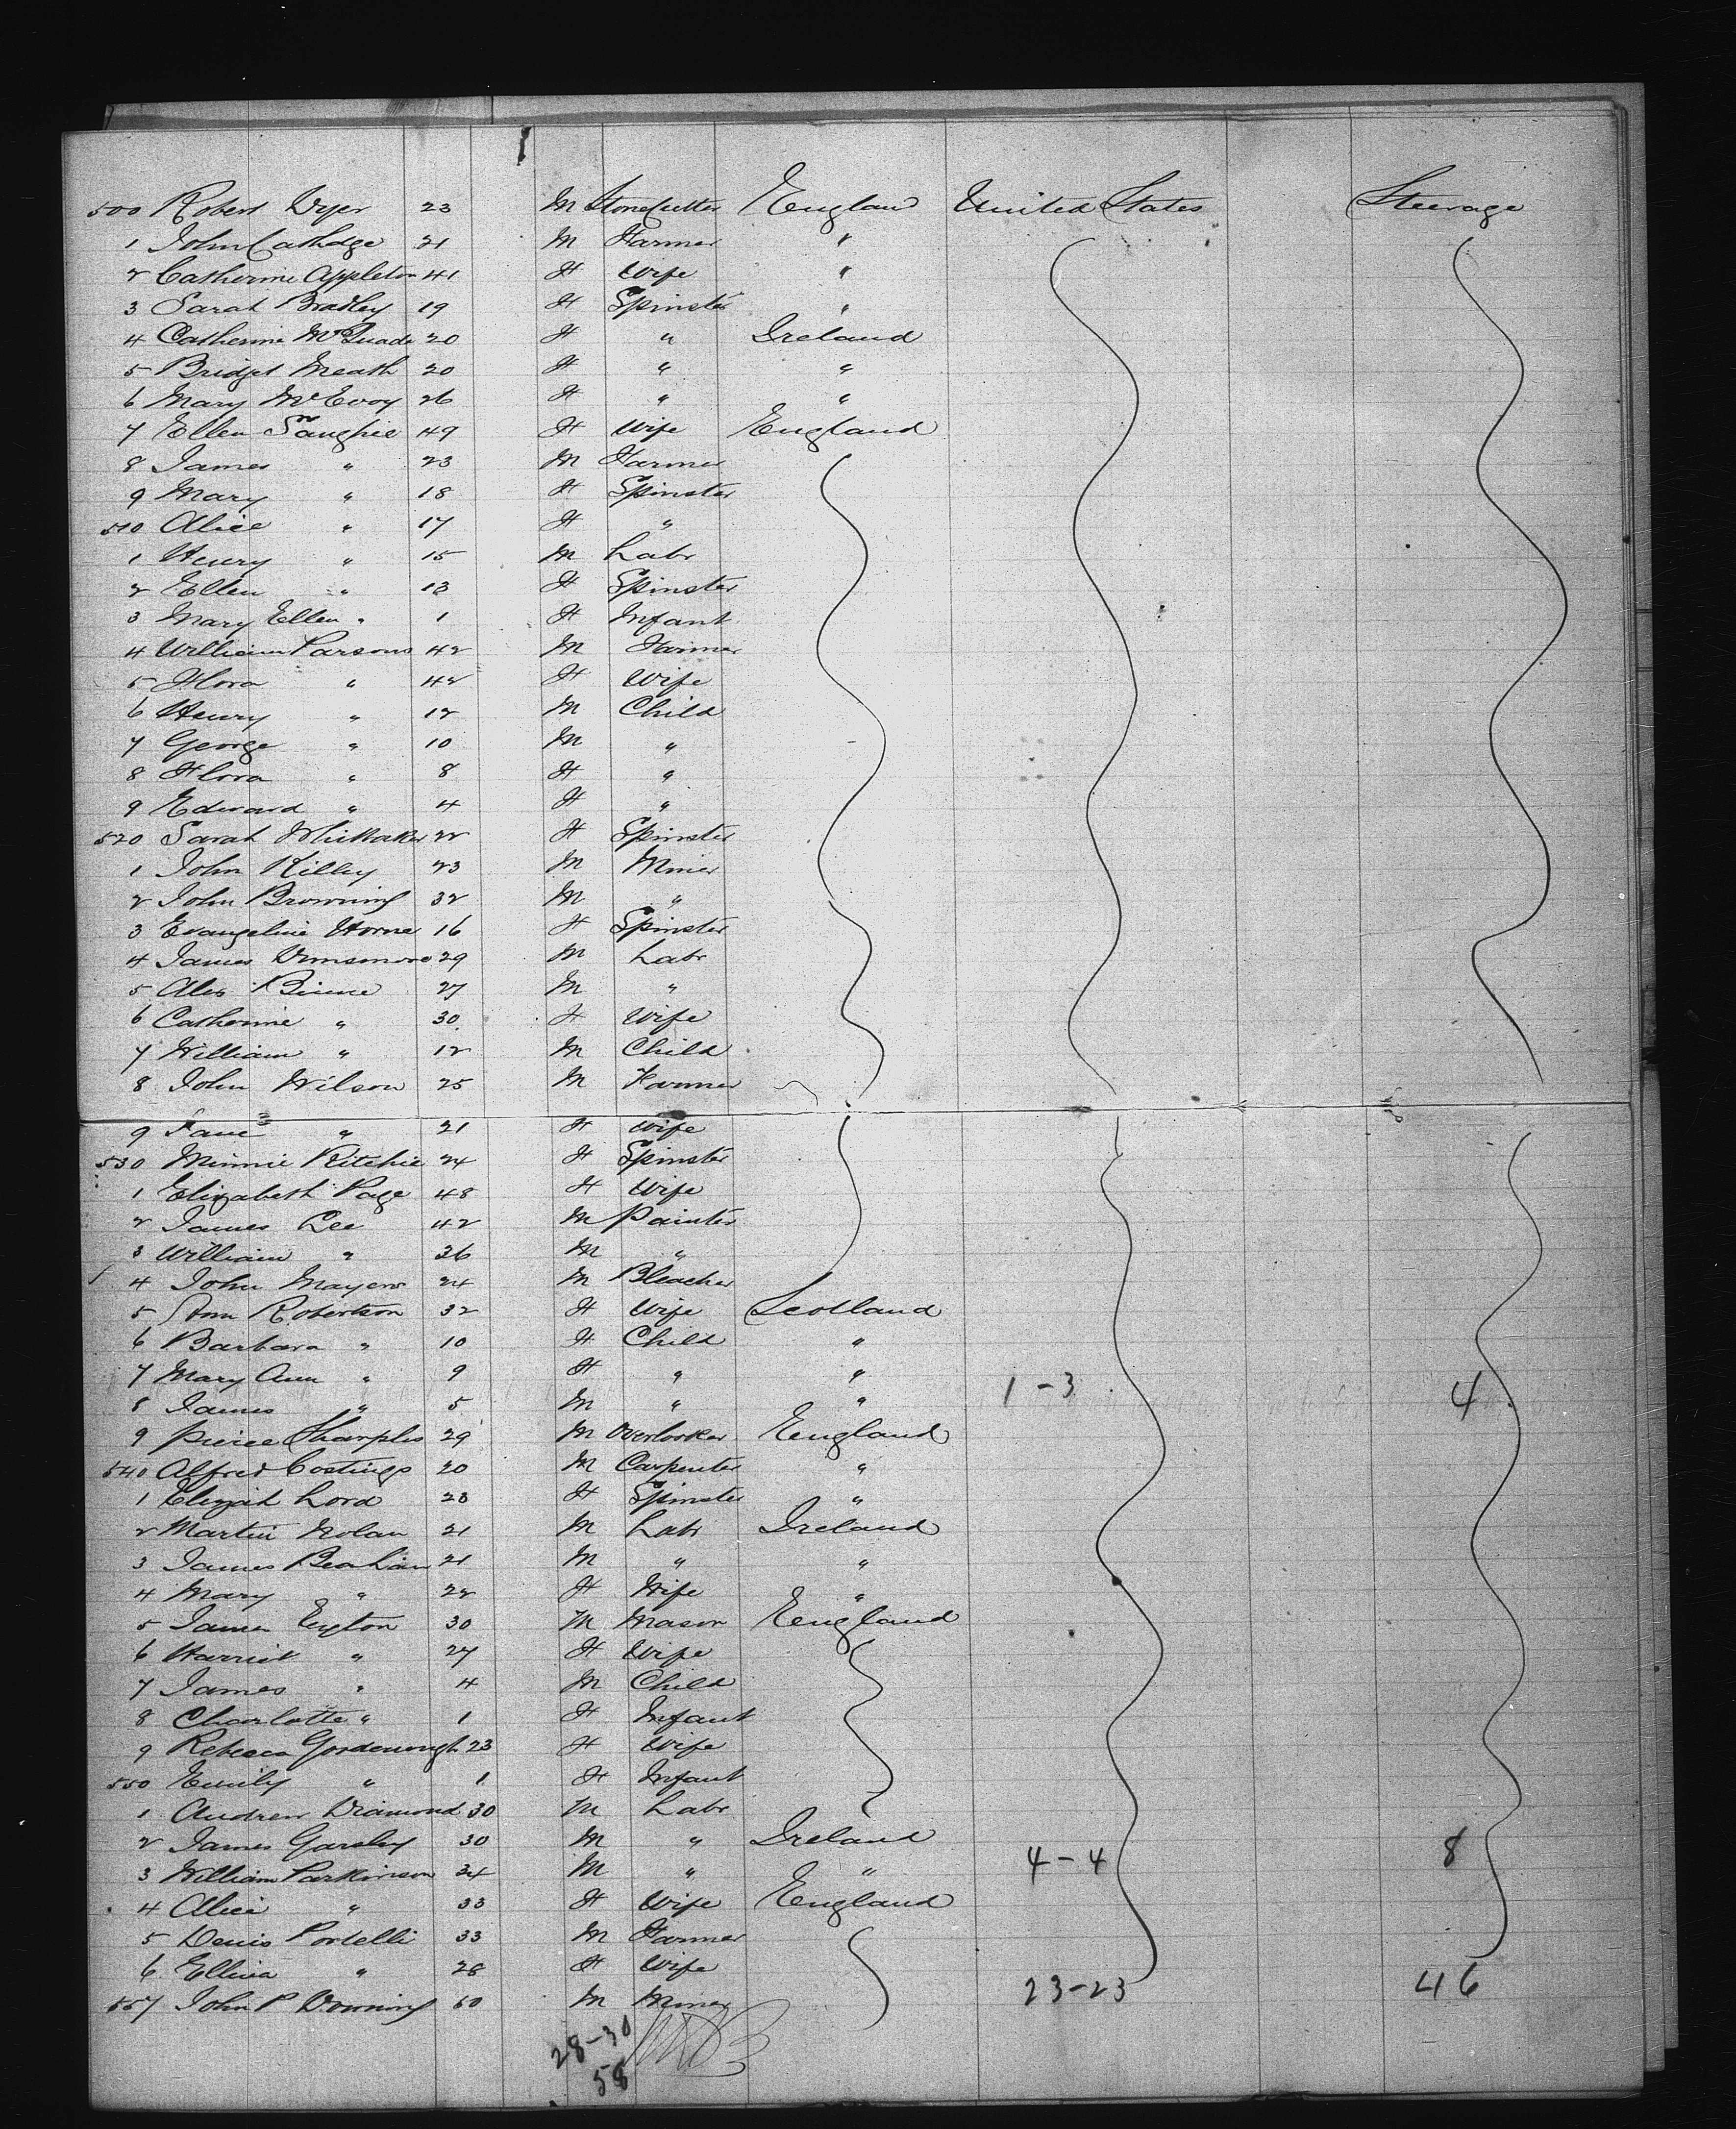 500 Robert Dyer 23 M Stonecutter England United States Steerage
1 John Cathdge 21 M Farmer "
2 Catherine Appleton 41 F Wife "
3 Sarah Bradley 19 F Spinster "
4 Catherine McQuade 20 F " Ireland
5 Bridget Meath 20 F " "
6 Mary McEvoy 26 F " "
7 Ellen Taughie 49 F Wife England
8 James " 23 M Farmer
9 Mary " 18 F Spinster
510 Alice " 17 F "
1 Henry " 15 M Labr
2 Ellen " 13 F Spinster
3 Mary Ellen " 1 F Infant
4 William Parsons 42 M Farmer
5 Flora " 42 F Wife
6 Henry " 12 M Child
7 George " 10 M "
8 Flora " 8 F "
9 Edward " 4 F "
520 Sarah Whittaker 22 F Spinster
1 John Killey 23 M Miner
2 John Browning 32 M "
3 Evangeline Horne 16 F Spinster
4 James Dunsmore 29 M Labr
5 Alex Binne 27 M "
6 Catherine " 30 F Wife
7 William " 12 M Child
8 John Wilson 25 M Farmer
9 Jane " 21 F Wife
530 Minnie Ritchie 24 F Spinster
1 Elizabeth Page 48 F Wife
2 James Lee 42 M Painter
3 William " 36 M "
4 John Mayers 24 M Bleacher
5 Ann Robertson 32 F Wife Scotland
6 Barbara " 10 F Child "
7 Mary Ann " 9 F " " 1-3 4
8 James " 5 M " "
9 Pierce Sharples 29 M Overlooker England
540 Alfred Costings 20 M Carpenter "
1 Elizah Lord 23 F Spinster "
2 Martin Nolan 21 M Labr Ireland
3 James Beahan 21 M " "
4 Mary " 22 F Wife "
5 James Eyton 30 M Mason England
6 Harriet " 27 F Wife
7 James " 4 M Child
8 Charlotte " 1 F Infant
9 Rebecca Gordenough 23 F Wife
550 Emily " 1 F Infant
1 Andrew Diamond 30 M Labr
2 James Garsley 30 M " Ireland
3 William Parkinson 34 M " " 4-4 8
4 Alice " 33 F Wife England
5 Denis Portelli 33 M Farmer
6 Ellina " 28 F Wife 23-23 46
557 John P Downing 50 M Miner
28-30
58